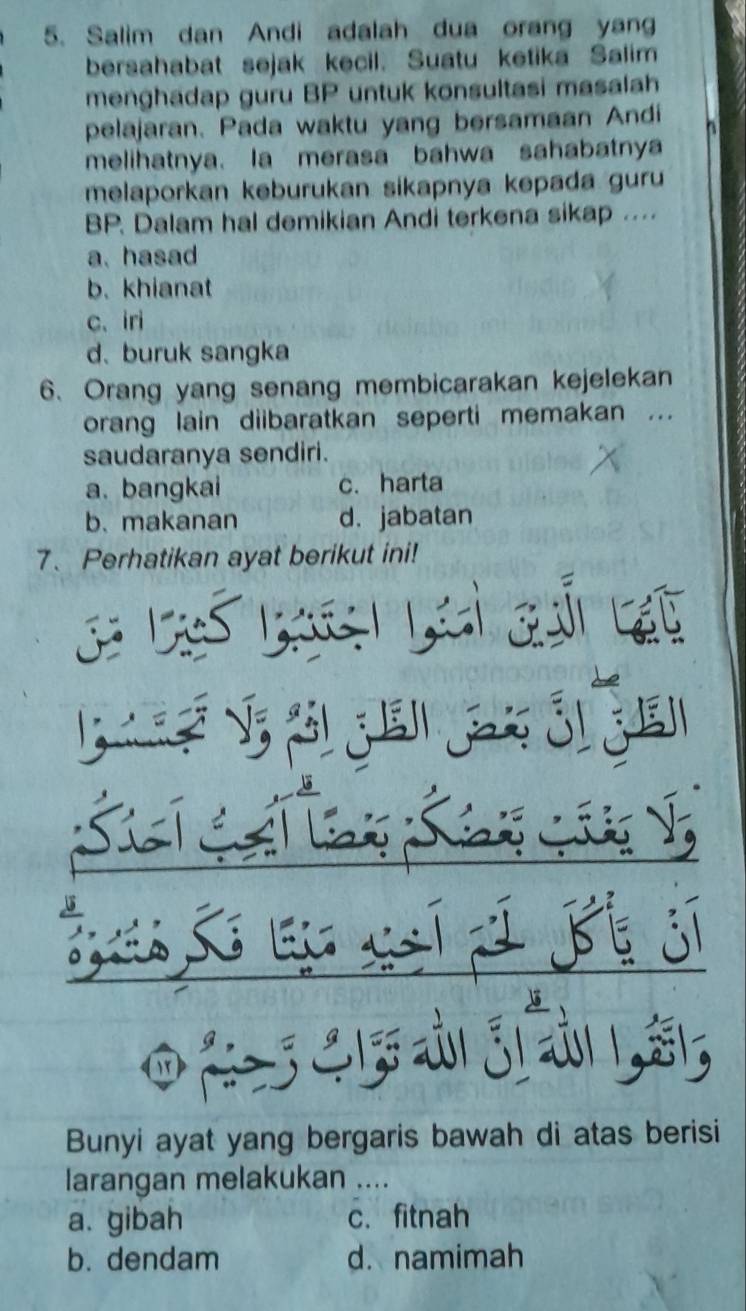 5. Salim dan Andi adalah dua orang yang
bersahabat sejak kecil. Suatu ketika Salim
menghadap guru BP untuk konsultasi masalah
pelajaran. Pada waktu yang bersamaan Andi
melihatnya. Ia merasa bahwa sahabatnya
melaporkan keburukan sikapnya kepada guru
BP. Dalam hal demikian Andi terkena sikap ....
a. hasad
b. khianat
c. iri
d. buruk sangka
6. Orang yang senang membicarakan kejelekan
orang lain diibaratkan seperti memakan ...
saudaranya sendiri.
a. bangkai c. harta
b. makanan d. jabatan
7. Perhatikan ayat berikut ini!
يٰٓاَيُّهَا الَّذِيْنَ اٰمَنُوا اجْتَنِبُوْا كَثِيْرًا مِّنَ
الظَّنِّۖ اِنَّ بَعْضَ الظَّنِّ اِثْمٌ وَّلَا تَجَسَّسُوْا
وَلَا يَغْتَبْ بَّعْضُكُمْ بَعْضًاۗ اَيُحِبُّ اَحَدُكُمْ
اَنْ يَّأْكُلَ لَحْمَ اَخِيْهِ مَيْتًا فَكَرِهْتُمُوْهُۗ
وَاتَّقُوا اللّٰهَۗ اِنَّ اللّٰهَ تَوَّابٌ رَّحِيْمٌ ﴿١٢﴾
Bunyi ayat yang bergaris bawah di atas berisi
larangan melakukan ....
a. gibah c. fitnah
b. dendam d. namimah